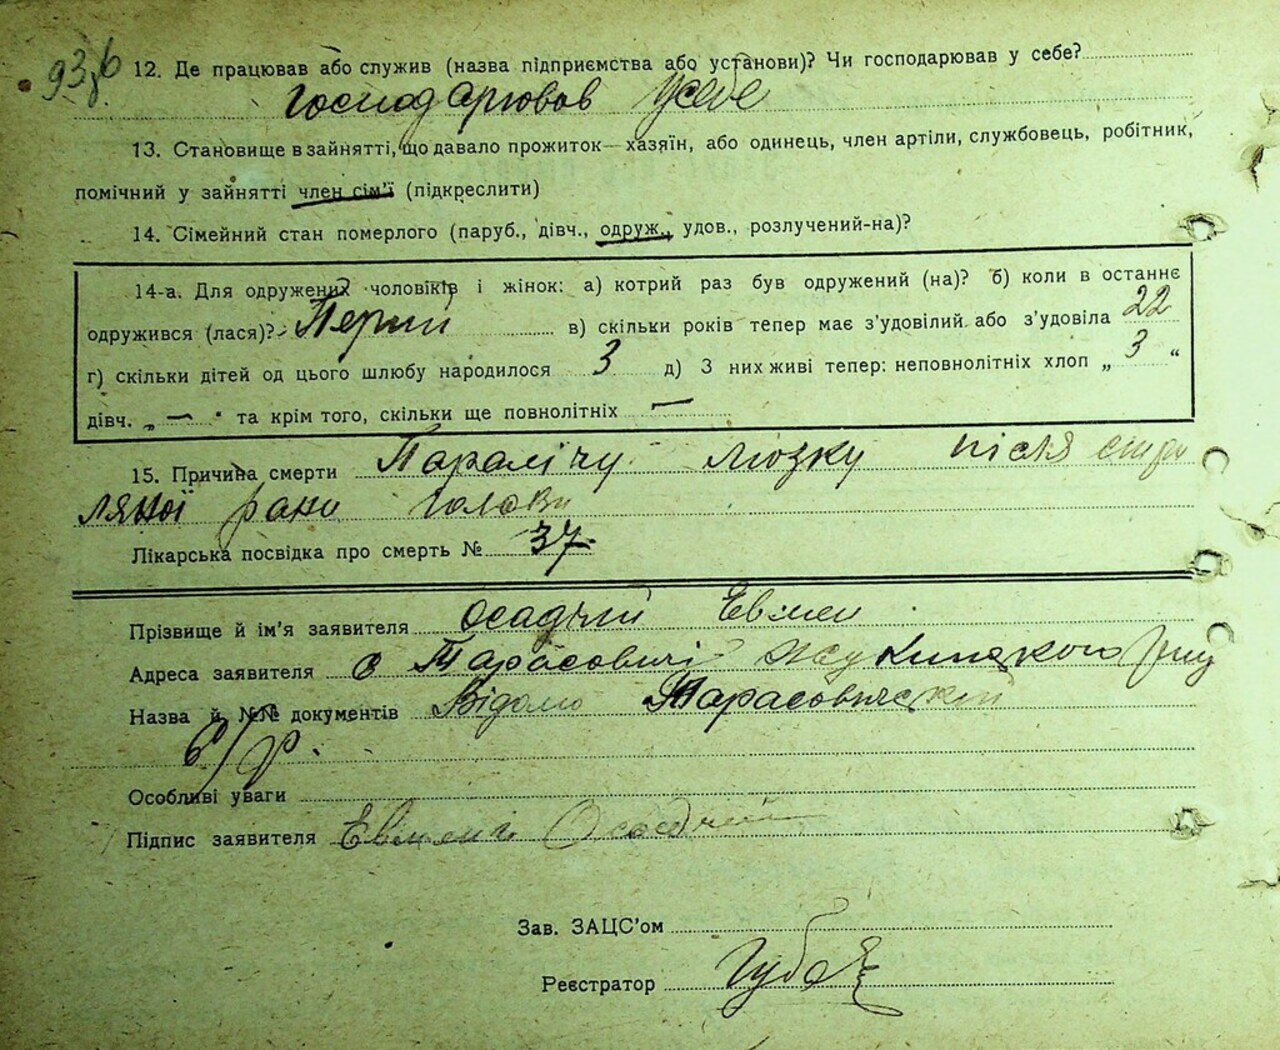 12. Де працював або служив (назва підприємства або установи)? Чи господарював у себе?
Господарював усебе
13. Становище в зайнятті, що давало прожиток—хазяїн, або одинець, член артіли, службовець, робітник,
помічний у зайнятті член сім'ї (підкреслити)
14. Сімейний стан померлого (паруб., дівч., одруж., удов., розлучений-на)?
14-а. Для одружених чоловіків і жінок: а) котрий раз був одружений (на)? б) коли в останнє
одружився (лася)? Перший в) скільки років тепер має з'удовілий або з'удовіла 22
г) скільки дітей од цього шлюбу народилося 3 д) З них живі тепер: неповнолітніх хлоп „ 3 “
дівч. „ — “ та крім того, скільки ще повнолітніх —
15. Причина смерти Паралічу мозку після стри
ляної рани голови
Лікарська посвідка про смерть № 37
Прізвище й ім'я заявителя Осадчий Евмен
Адреса заявителя с Тарасовичі
Назва й №№ документів Відомо Тарасовичский
с/р.
Особливі уваги
Підпис заявителя Евмені Осадчий
Зав. ЗАЦС'ом
Реєстратор